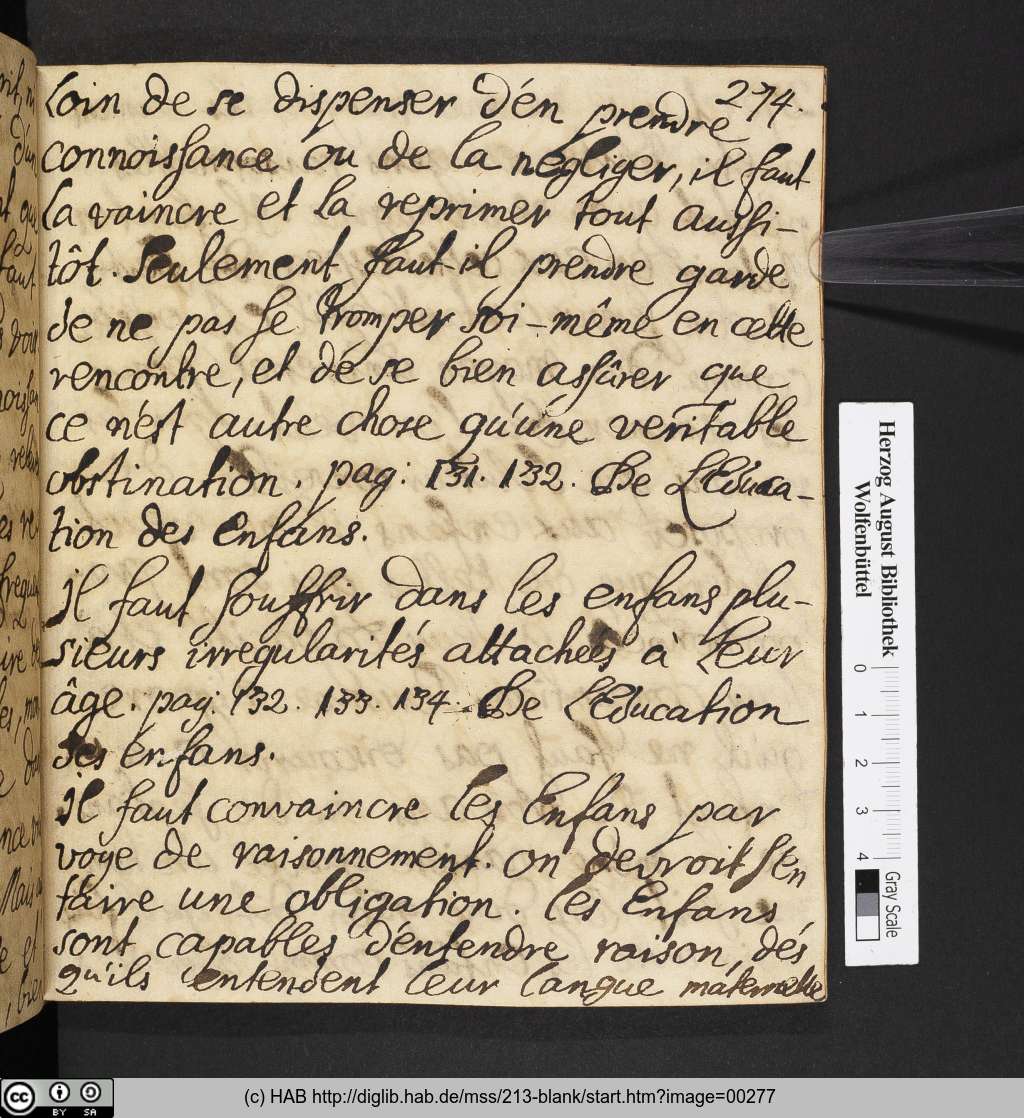 274.
Loin de se dispenser d'en prendre
connoissance ou de la negliger, il faut
la vaincre et la reprimer tout aussi-
tôt. Seulement faut-il prendre garde
de ne pas se tromper soi-même en cette
rencontre, et de se bien assûrer que
ce n'est autre chose qu'une veritable
obstination. pag: 131. 132. De L'Educa-
tion des enfans.
Il faut souffrir dans les enfans plu-
sieurs irregularités attachées à Leur
âge. pag: 132. 133. 134. De L'Education
des enfans.
il faut convaincre les Enfans par
voye de raisonnement. on devroit s'en
faire une obligation. les Enfans
sont capables d'entendre raison, dés
qu'ils entendent leur langue maternelle
Herzog August Bibliothek
Wolfenbüttel
0 1 2 3 4
Gray Scale
cc BY SA
(c) HAB http://diglib.hab.de/mss/213-blank/start.htm?image=00277